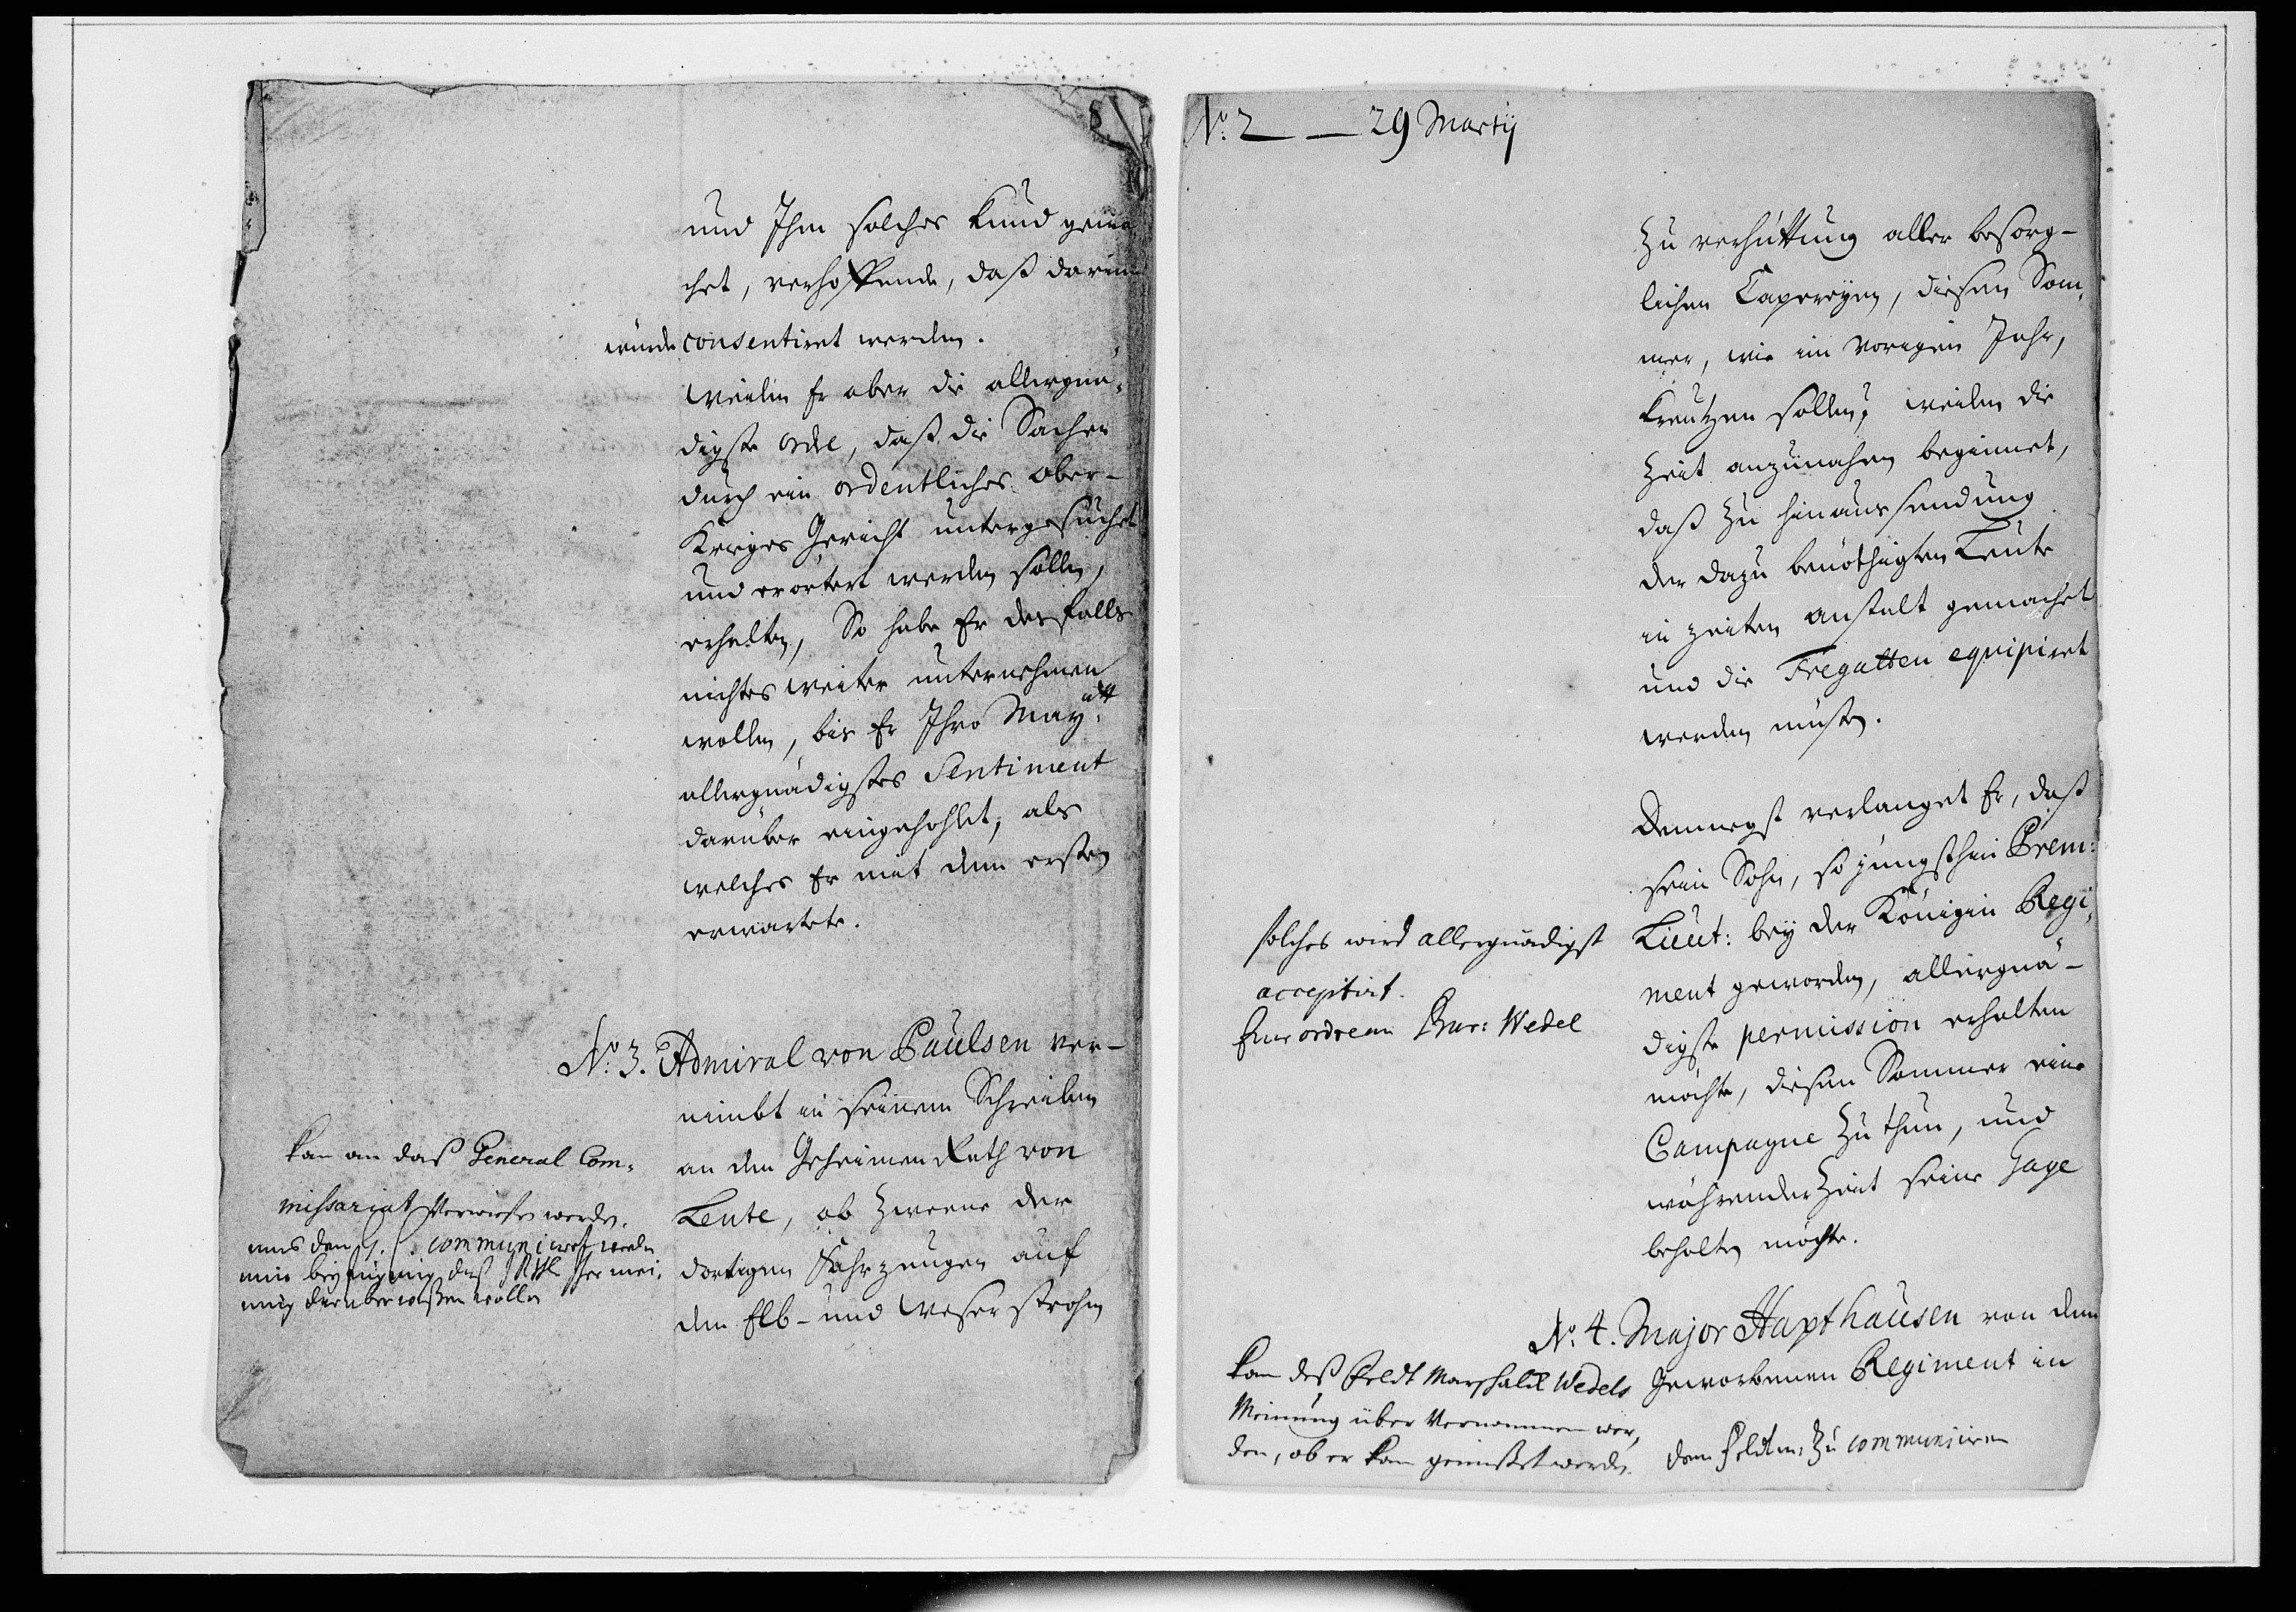 8
und Ihm solches kund gema
chet, verhoffende, daß darin
würde consentiret werden.
Weilen Er aber die allergnä,
digste ordre, daß die Sachen
durch ein ordentliches Ober-
Krieges Gericht untergesuchet
und erörtert werden sollen,
erhalten, So habe Er desfalls
nichtes weiter unternehmen
wollen, bis Er Ihro Mayᵗᵗ:
allergnädigstes Sentiment
darüber eingehohlet, als
welches Er mit dem ersten
erwartete.
No: 3. Admiral von Paulsen ver-
nimbt in seinem Schreiben
an den Geheimen Rath von
Lente, ob zweene der
dortigen Fahrzeugen auf
dem Elb- und Weserstrohm
Kan an daß General Com,
missariat verwiesen werde.
mus den communiciret werden
mit beyfügung daß ihre mei,
nung darüber wißen wollen
No: 2 — 29 Martij
zu verhüttung aller besorg-
lichen Capereyen, diesen Som,
mer, wie im vorigen Jahr,
kreutzen sollen? weilen die
Zeit anzunahen beginnet,
daß zu hinaussendung
der dazu benöthigten Leute
in zeiten anstalt gemachet
und die Fregatten equipiret
werden müste.
Demnegst verlanget Er, daß
sein Sohn, so jüngsthin Prem:
Lieut: bey der Königin Regi,
ment geworden, allergnä-
digste permission erhalten
möchte, diesen Sommer eine
Campagne zu thun, und
währender Zeit seine Gage
behalten möchte.
solches wird allergnädigst
acceptirt.
Eine ordre an Bar: Wedel
No: 4. Major Haxthausen von dem
Geworbenen Regiment in
Kan deß Feldt Marschalck Wedels
Meinung über vernommen wer,
den, ob er kan gemißet werde.
dem Feldtm: zu communiciren